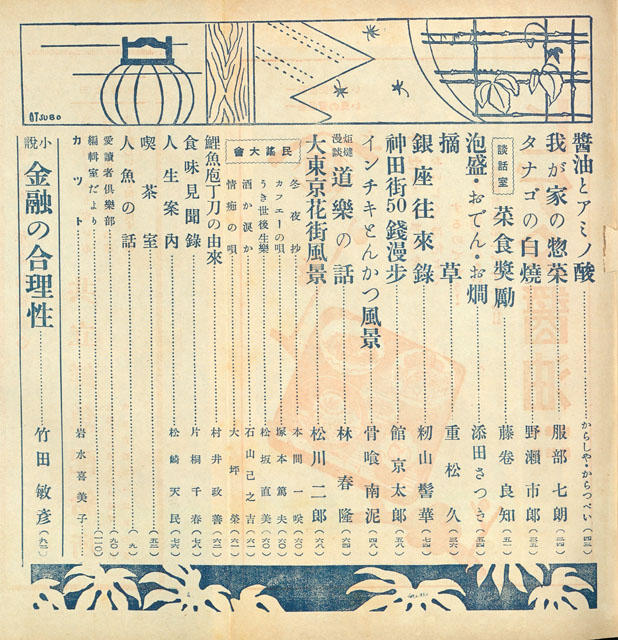 醬油とアミノ酸……からしや・からつぺい(四三)
我が家の惣菜……服部七朗(三四)
タナゴの白燒……野瀨市郎(三五)
談話室 菜食獎勵……藤卷良知(五一)
泡盛・おでん・お燗……添田さつき(五四)
摘草……重松久(三六)
銀座往來錄……籾山髻華(七四)
神田街50錢漫步……館京太郎(五八)
インチキとんかつ風景……骨喰南泥(四八)
炬燵漫談 道樂の話……林春隆(六四)
大東京花街風景……松川二郎(六八)
民謠大會
冬夜抄……本間一咲(六〇)
カフエーの唄……塚本篤夫(六〇)
うき世後生樂……松坂直美(六〇)
酒か淚か……石山己之吉(六一)
情痴の唄……大坪榮(六一)
鯉魚庖丁刀の由來……村井政善(三二)
食味見聞錄……片桐千春(七六)
人生案內……松崎天民(七六)
喫茶室……(五三)
人魚の話……(九)
愛讀者俱樂部……(九〇)
編輯室だより……(一一〇)
カツト……岩水喜美子
小說 金融の合理性……竹田敏彥(九三)
OTSUBO